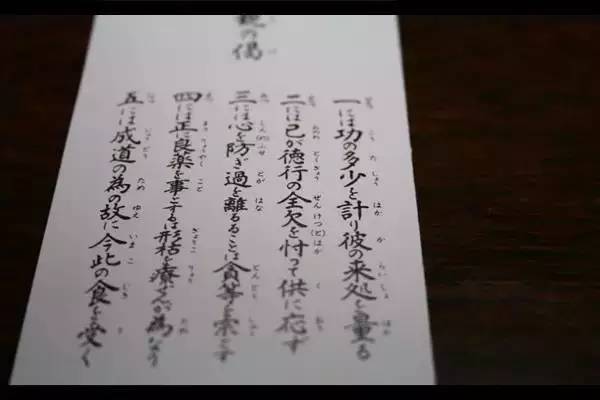 観の偈
一には功の多少を計り彼の来処を量る
二には己が徳行の全欠を忖って供に応ず
三には心を防ぎ過を離るることは貪等を宗とす
四には正に良薬を事とするは形枯を療ぜんが為なり
五には成道の為の故に今此の食を受く